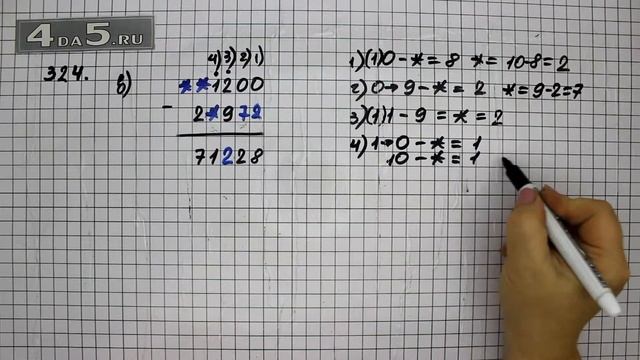 4ДА5.RU
324.
в)
4) 3) 2) 1)
**1200
- 2*972
71228
1) (1)0 - * = 8 * = 10-8=2
2) 0→9 - * = 2 * = 9-2=7
3) (1)1 - 9 = * = 2
4) 1→0 - * = 1
10 - * = 1